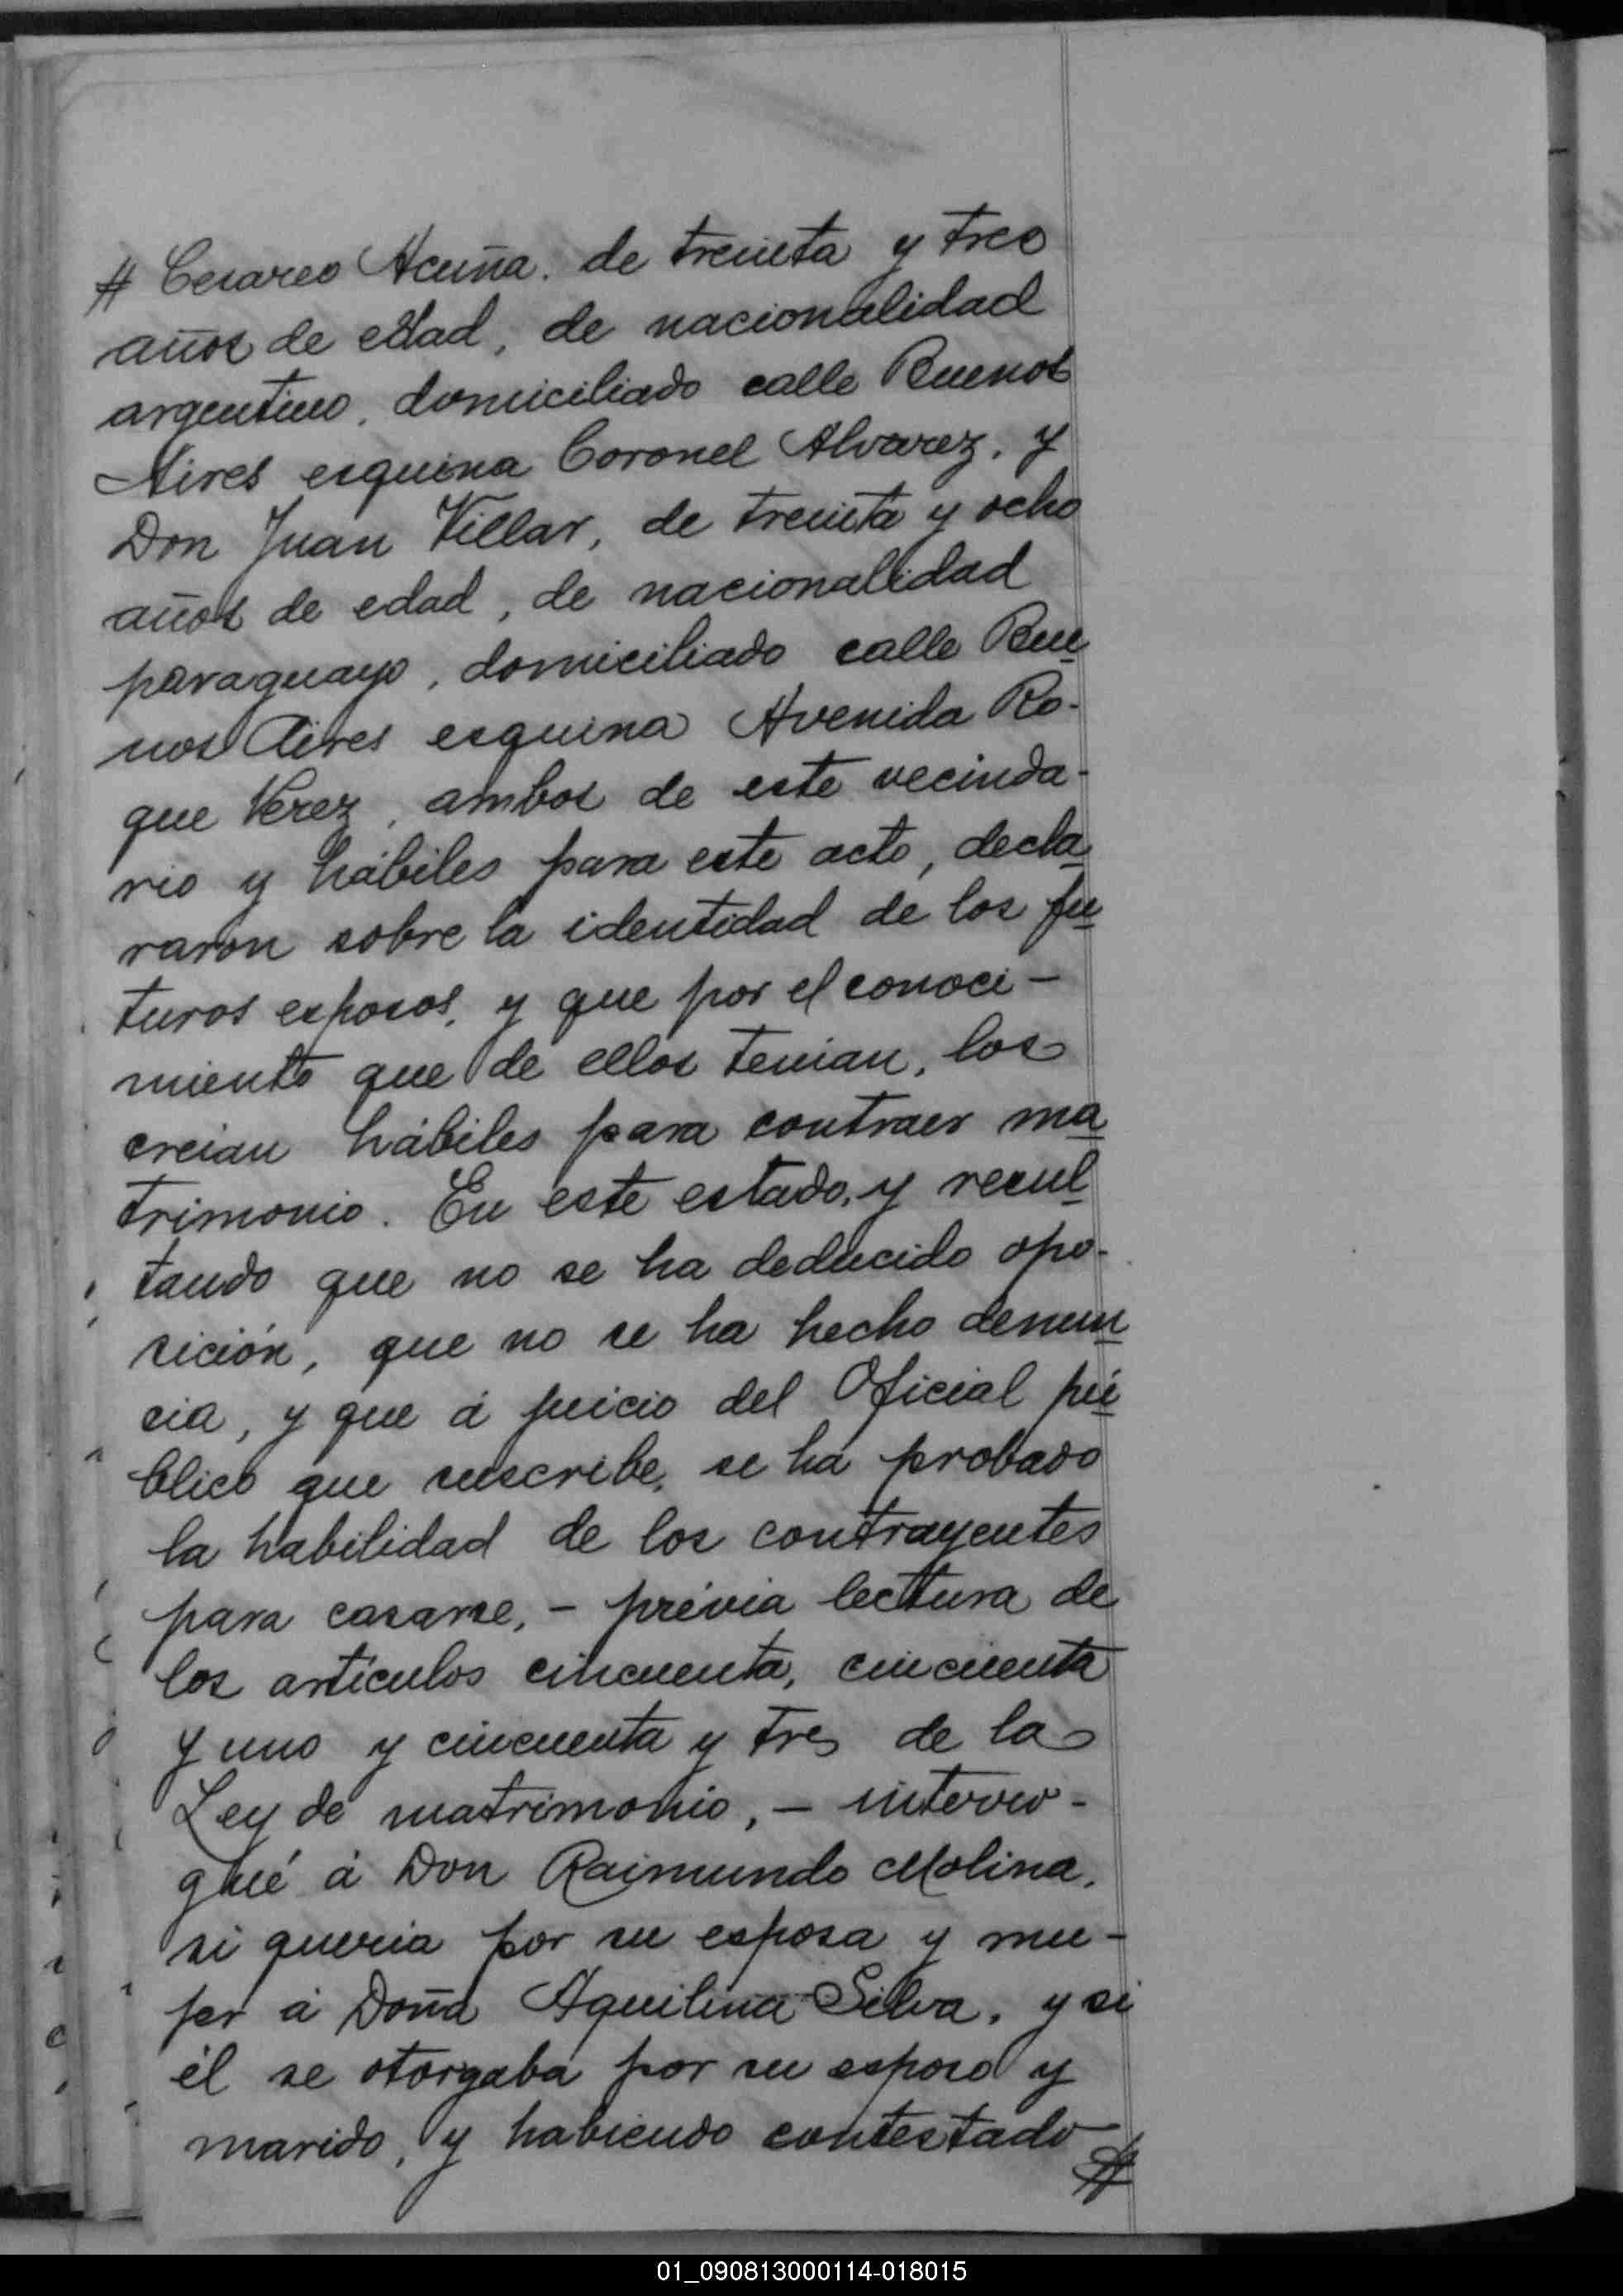 # Cesareo Acuña. de treinta y tres
años de edad, de nacionalidad
argentino, domiciliado calle Buenos
Aires esquina Coronel Alvarez, y
Don Juan Villar, de treinta y ocho
años de edad, de nacionalidad
paraguayo, domiciliado calle Bue
nos Aires esquina Avenida Ro-
que Perez, ambos de este vecinda-
rio y hábiles para este acto, decla
raron sobre la identidad de los fu
turos esposos, y que por el conoci-
miento que de ellos tenian, los
creian hábiles para contraer ma
trimonio. En este estado, y resul
tando que no se ha deducido opo-
sición, que no se ha hecho denun
cia, y que á juicio del Oficial pú
blico que suscribe, se ha probado
la habilidad de los contrayentes
para casarse, - prévia lectura de
los artículos cincuenta, cincuenta
y uno y cincuenta y tres de la
Ley de matrimonio, - interro-
gué á Don Raimundo Molina,
si queria por su esposa y mu-
jer á Doña Aquilina Silva, y si
él se otorgaba por su esposo y
marido, y habiendo contestado #
01_090813000114-018015